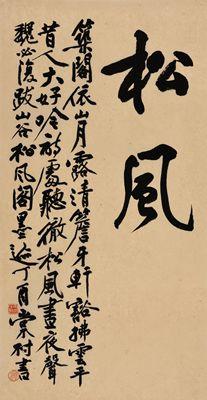 松風
築閣依山月露清簷牙軒豁拂雲平
昔人大好吟詩處聽徹松風晝夜聲
魏必復跋山谷松風閣墨迹丁酉棠村書